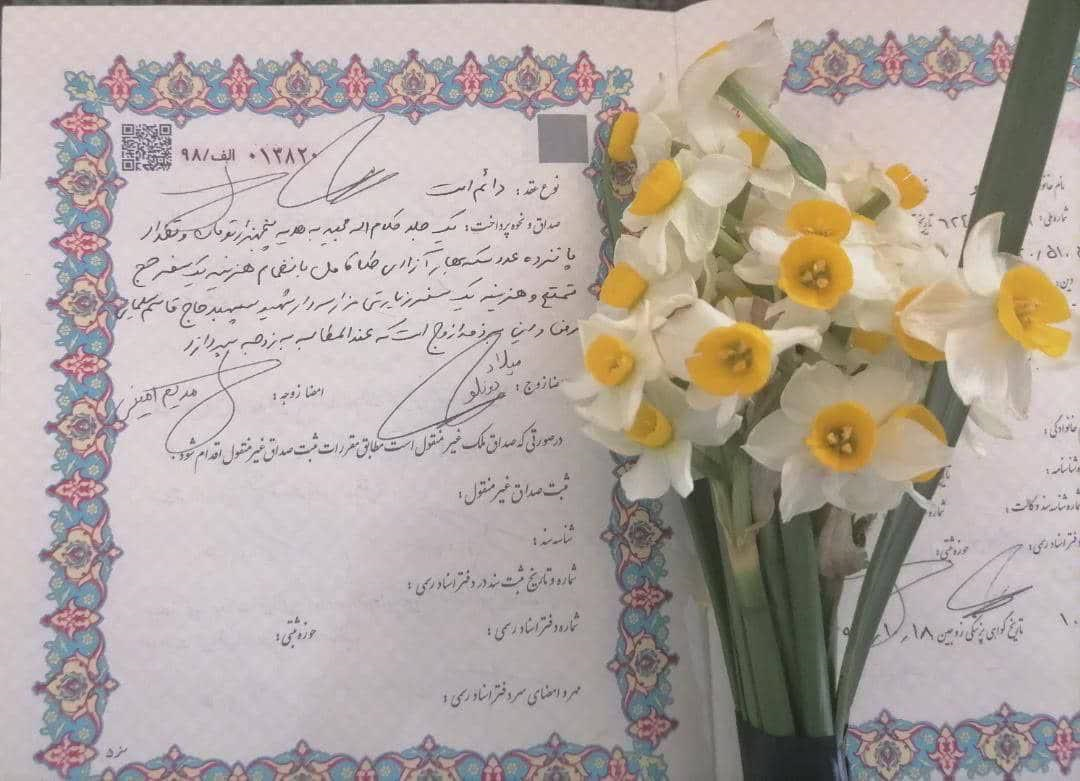 ۰۱۳۸۲۰ الف/۹۸
نوع عقد: دائم است
صداق و نحوه پرداخت: یک جلد کلام اله مجید به هدیه تومان و مقدار
پانزده عدد سکه بهار آزادی طلا تمام بانضمام هزینه یک سفر حج
تمتع و هزینه یک سفر زیارتی مزار سردار شهید سپهبد حاج قاسم سلیمانی
زوج است که عندالمطالبه به زوجه بپردازد
امضا زوج: میلاد
امضا زوجه: مریم امینی
درصورتی که صداق ملک غیر منقول است مطابق مقررات ثبت صداق غیر منقول اقدام شود.
ثبت صداق غیر منقول:
شناسه سند:
شماره و تاریخ ثبت سند در دفتر اسناد رسمی:
شماره دفتر اسناد رسمی: حوزه ثبتی:
مهر و امضای سردفتر اسناد رسمی:
ص ۵
نام خانو
شماره ملی: ۶۲۲ تاریخ
این
م خانوادگی:
شناسنامه:
شماره شناسه سند وکالت: شماره
دفتر اسناد رسمی: حوزه ثبتی:
تاریخ گواهی پزشکی زوجین ۱۸